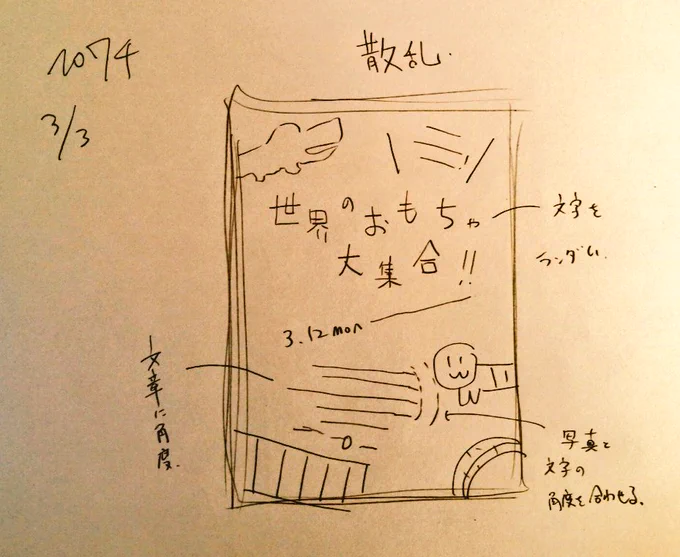 1074
3/3
散乱.
世界のおもちゃ
大集合!!
3.12mon
文字を
ランダム.
文章に角度.
写真と
文字の
角度を合わせる.